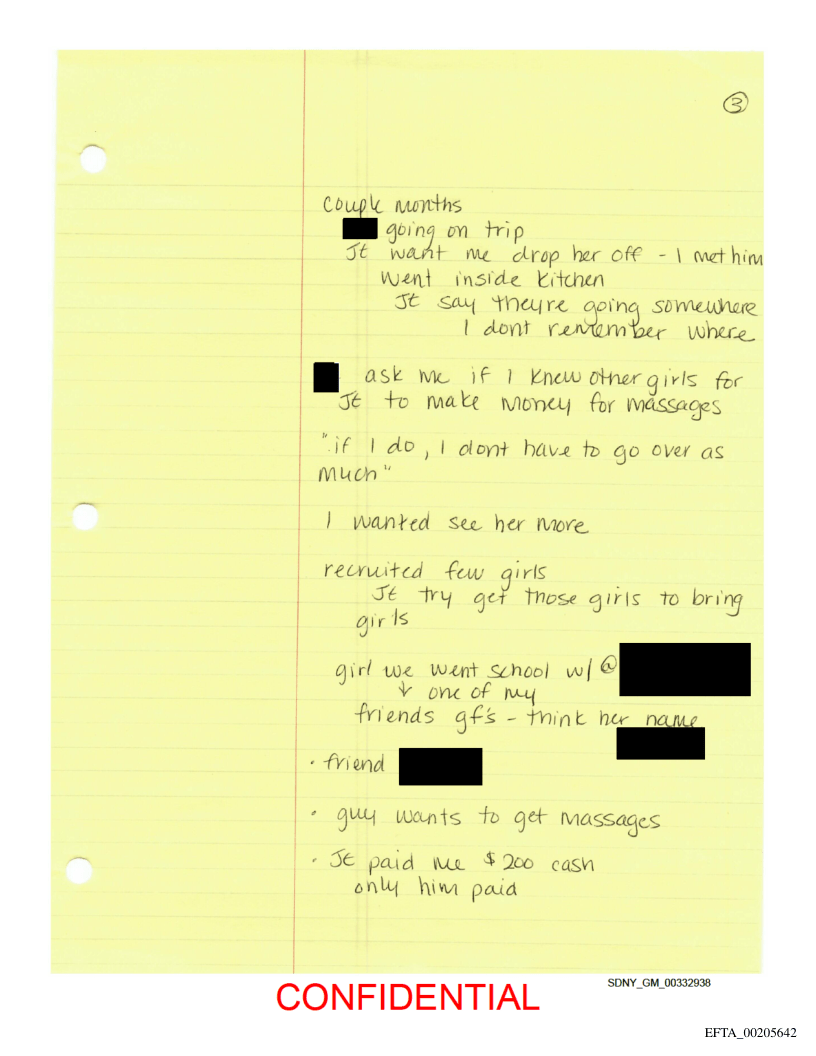 3
couple months
going on trip
JE want me drop her off - I met him
went inside kitchen
JE say theyre going somewhere
I dont remember where
ask me if I knew other girls for
JE to make money for massages
"if I do, I dont have to go over as
much"
I wanted see her more
recruited few girls
JE try get those girls to bring
girls
girl we went school w/ @
↓ one of my
friends gf's - think her name
• friend
• guy wants to get massages
• JE paid me $200 cash
only him paid
SDNY_GM_00332938
CONFIDENTIAL
EFTA_00205642